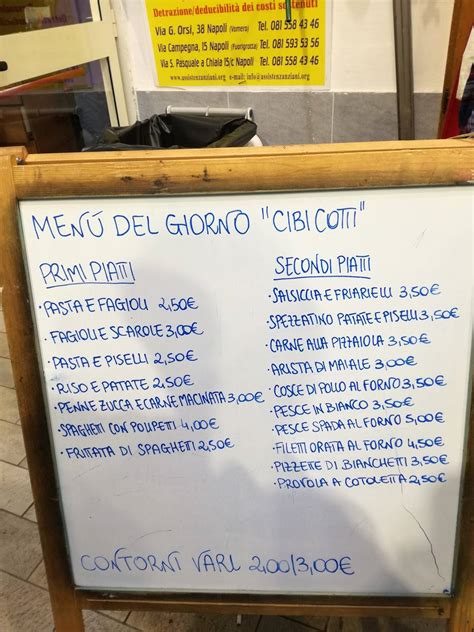 Detrazione/deducibilità dei costi sostenuti
Via G. Orsi, 38 Napoli (Vomero) Tel. 081 558 43 46
Via Campegna, 15 Napoli (Fuorigrotta) Tel. 081 593 53 56
Via S. Pasquale a Chiaia 15/c Napoli Tel. 081 558 43 46
www.assistenzanziani.org e-mail: info@assistenzanziani.org
MENÚ DEL GIORNO "CIBI COTTI"
PRIMI PIATTI
· PASTA E FAGIOLI 2,50€
· FAGIOLI E SCAROLE 3,00€
· PASTA E PISELLI 2,50€
· RISO E PATATE 2,50€
· PENNE ZUCCA E CARNE MACINATA 3,00€
· SPAGHETI CON POLPETI 4,00€
· FRITTATA DI SPAGHETTI 2,50€
SECONDI PIATTI
· SALSICCIA E FRIARIELLI 3,50€
· SPEZZATINO PATATE E PISELLI 3,50€
· CARNE ALLA PIZZAIOLA 3,50€
· ARISTA DI MAIALE 3,00€
· COSCE DI POLLO AL FORNO 3,50€
· PESCE IN BIANCO 3,50€
· PESCE SPADA AL FORNO 5,00€
· FILETTI ORATA AL FORNO 4,50€
· PIZZETTE DI BIANCHETTI 3,50€
· PROVOLA A COTOLETTA 2,50€
CONTORNI VARI 2,00/3,00€